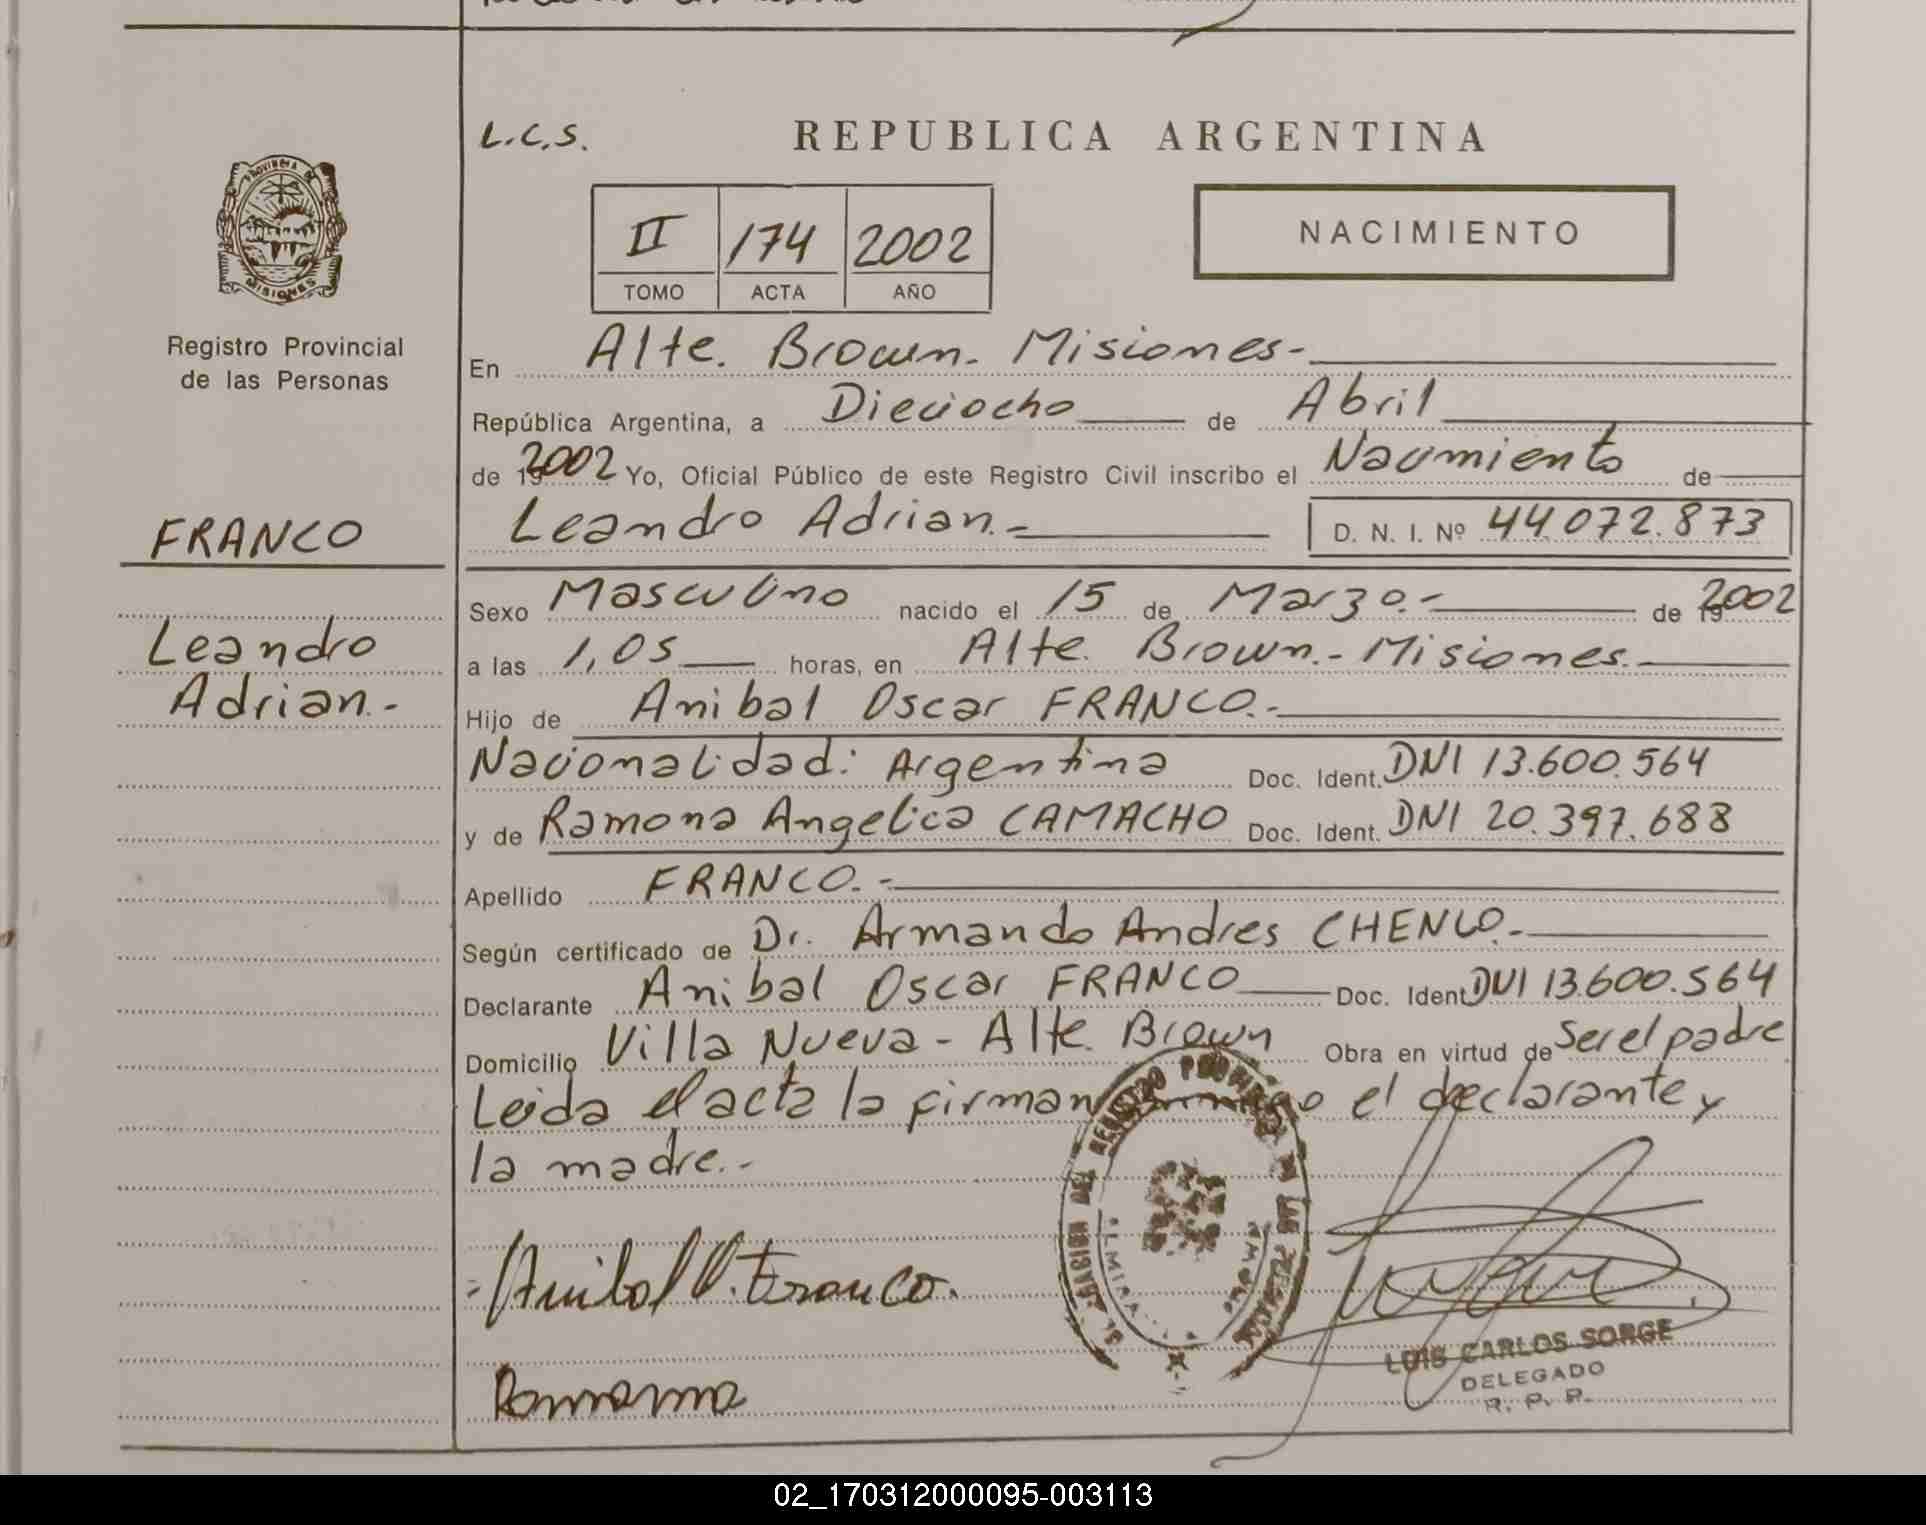 L.C.S.
REPUBLICA ARGENTINA
PROVINCIA DE MISIONES
II 174 2002
TOMO ACTA AÑO
NACIMIENTO
Registro Provincial
de las Personas
En Alte. Brown. Misiones-
República Argentina, a Dieciocho de Abril
de 192002 Yo, Oficial Público de este Registro Civil inscribo el Nacimiento de
Leandro Adrian.- D. N. I. Nº 44.072.873
FRANCO
Leandro
Adrian.-
Sexo Masculino nacido el 15 de Marzo.- de 192002
a las 1,05 horas, en Alte. Brown.- Misiones.-
Hijo de Anibal Oscar FRANCO.-
Nacionalidad: Argentina Doc. Ident. DNI 13.600.564
y de Ramona Angelica CAMACHO Doc. Ident. DNI 20.397.688
Apellido FRANCO.-
Según certificado de Dr. Armando Andres CHENLO.-
Declarante Anibal Oscar FRANCO Doc. Ident DNI 13.600.564
Domicilio Villa Nueva - Alte. Brown Obra en virtud de Ser el padre
Leida el acta la firman el declarante y
la madre.-
Anibal O. Franco.
Ramona
LUIS CARLOS SORGE
DELEGADO
R. P. P.
02_170312000095-003113